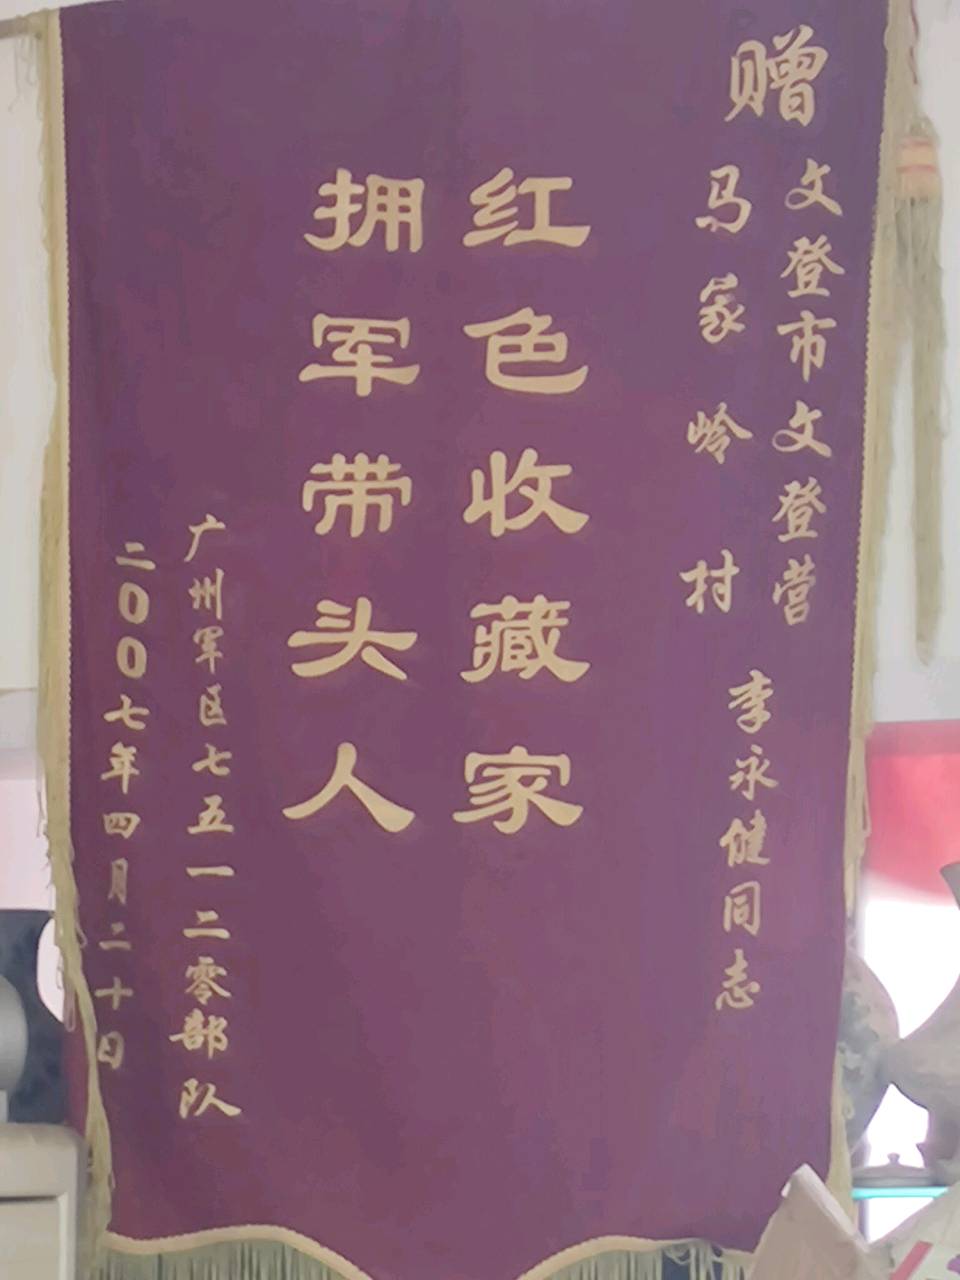 赠
文登市文登营
马家岭村
李永健同志
红色收藏家
拥军带头人
广州军区七五一二零部队
二00七年四月二十日